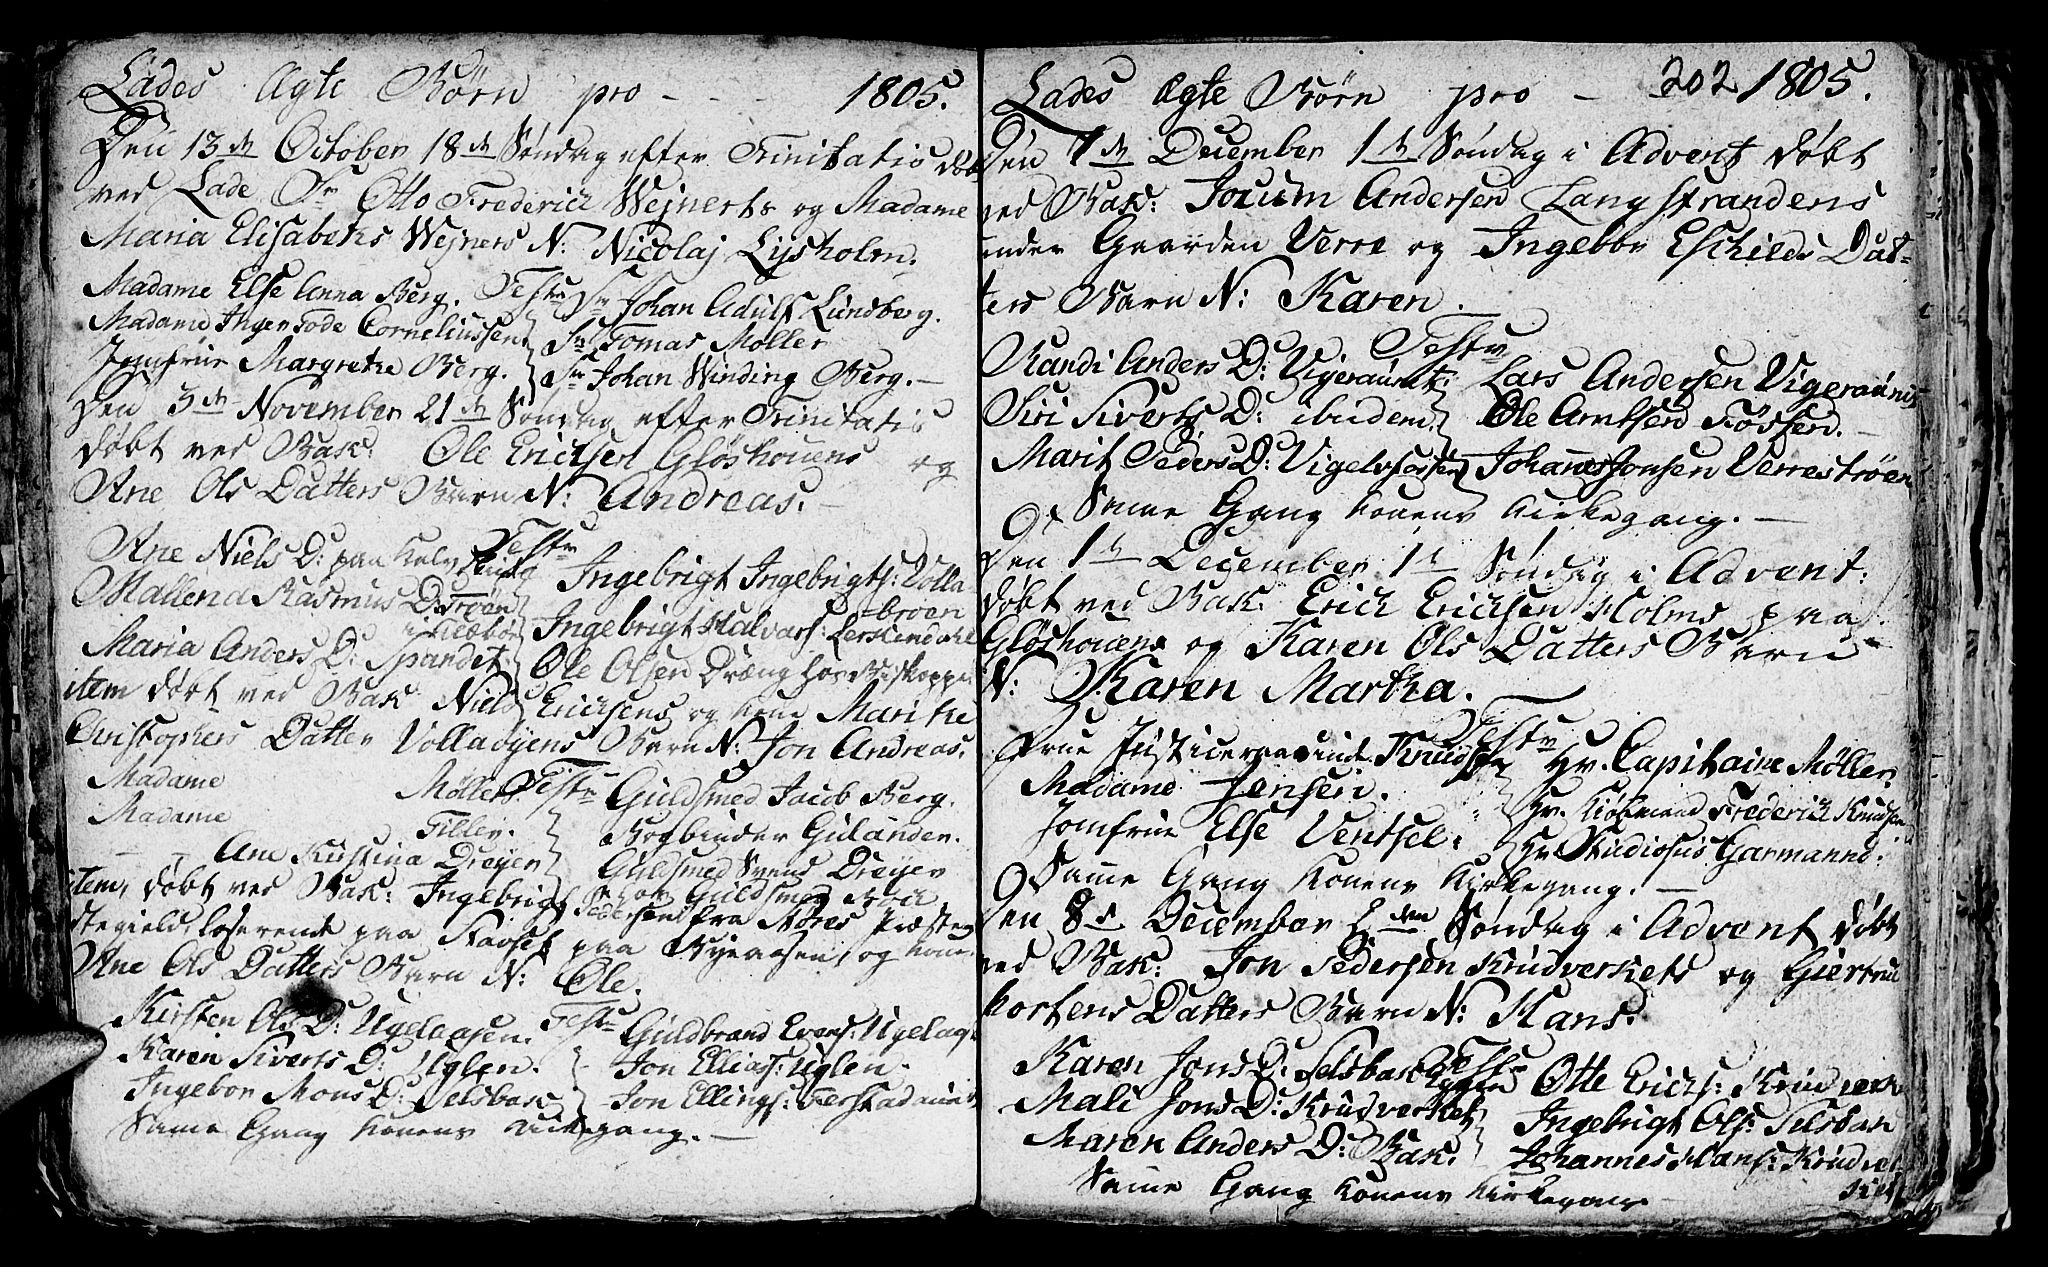 Lades Ægte Börn pro - - - 1805.
Den 13de October 18de Söndag efter Trinitatis döbt
ved Lade Sr Otto Frederich Wejnerts og Madame
Maria Elisabeths Wejners N: Nicolaj Lijsholm.
Testr
Madame Else Anna Berg. Sr Johan Adulf Lundberg.
Madame Inger Tode Corneliussen Sr Tomas Møller
Jomfrue Margrethe Berg. Sr Johan Winding Berg. -
Den 3de November 21de Söndag efter Trinitatis
döbt ved Bak: Ole Erichsen Glöshouens og
Ane Ols Datters Barn N: Andreas. -
Testr
Ane Niels D: paa Ingebrigt Ingebrigts: Volla
Mallena Rasmus D: Tröen -broen
i Klæböe Ingebrigt Halvars: Lerkendahl
Maria Anders D: Spandet. Ole Olsen Dræng hos Biskoppe
item döbt ved Bak Niels Erichsens og kone Marithe
Christophers Datter Vollaöyens Barn N: Jon Andreas.
Madame Möller. Testr Guldsmed Jacob Berg.
Madame Tiller. Bogbinder Gulander.
- - Ane Kristina Dreyer Guldsmed Svend Dreyer
for Guldsmed
item, döbt ved Bak: Ingebrigt Pedersens fra Præste-
stegield, loserende paa paa og kone
Ane Ols Datters Barn N: Ole.
Kirsten Ols D: Ugelaasen. Testr Guldbrand Evens: Ugelaa
Karen Siverts D: Uglen. Jon Ellias: Uglen.
Ingebor Mons D: Selsbak Jon Ellings: Ferstad
Same Gang konens kirkegang. -
Lades Ægte Börn pro - 202 1805.
Den 1de December 1de Söndag i Advent döbt
ved Bak: Jocum Andersen Langstrandens
under Gaarden Verre og Ingebor Eschilds Dat-
ters Barn N: Karen.
Testr
Randi Anders D: Vigeraunet: Lars Andersen Vigeraunet
Siri Siverts D: ibidem. Ole Arntsen Fössen. -
Marit Peders D: Vigelvfossen Johannes Jonsen Verreströen
Same Gang konens kirkegang. -
Den 1de December 1de Söndag i Advent:
döbt ved Bak: Erich Erichsen Holms paa
Glöshouens og Karen Ols Datters Barn
N: Karen Martha.
Testr
Frue Justiceraadinde Knudsen Hr. Capitaine Møller
Madame Jensen. Hr. Kiöbmand Frederich Knudsen
Jomfrue Else Ventsel: Hr. Studiosus Garmann.
Same Gang konens kirkegang. -
Den 8de December 2den Söndag i Advent döbt
ved Bak: Jon Pedersen Krudverkets og Giertrud
Mortens Datters Barn N: Hans.
Testr
Karen Jons D: Selsbak Otte Erichs: Krudverk
Mali Jons D: Krudverket Ingebrigt Ols: Selsbak
Maren Anders D: Bak. - Johannes Hans: Krudver
Same Gang konens kirkegang - ket